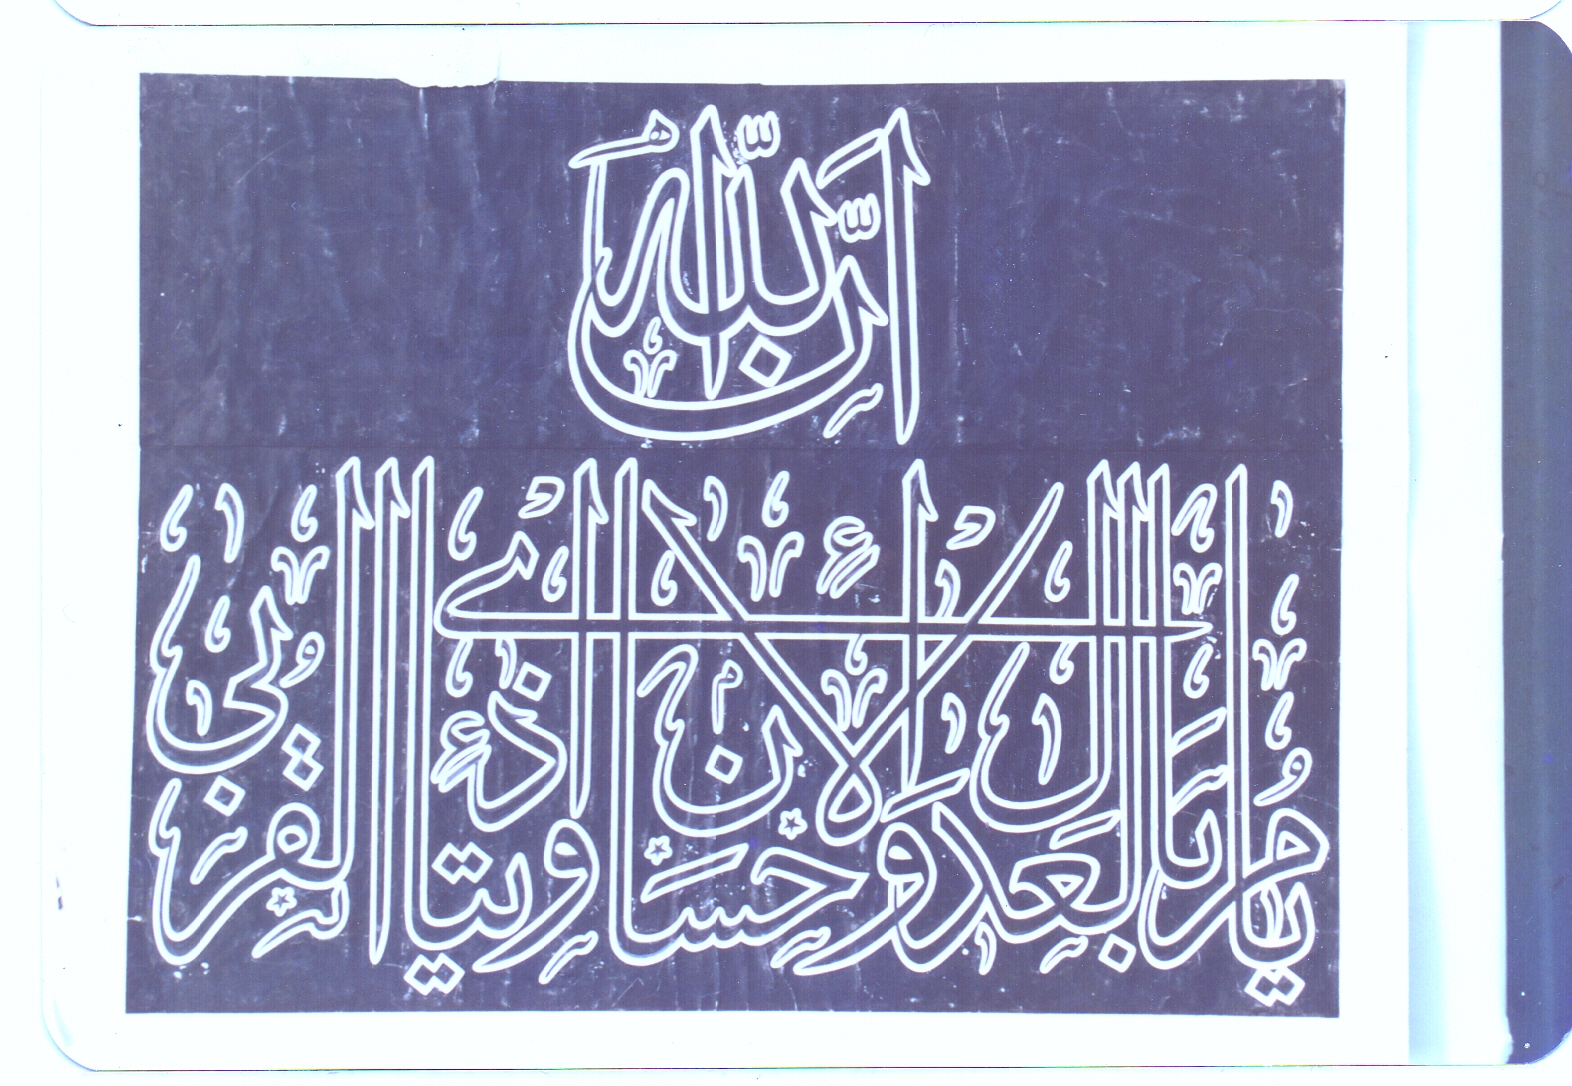 إِنَّ اللَّهَ
يَأْمُرُ بِالْعَدْلِ وَالْإِحْسَانِ وَإِيتَاءِ ذِي الْقُرْبَىٰ